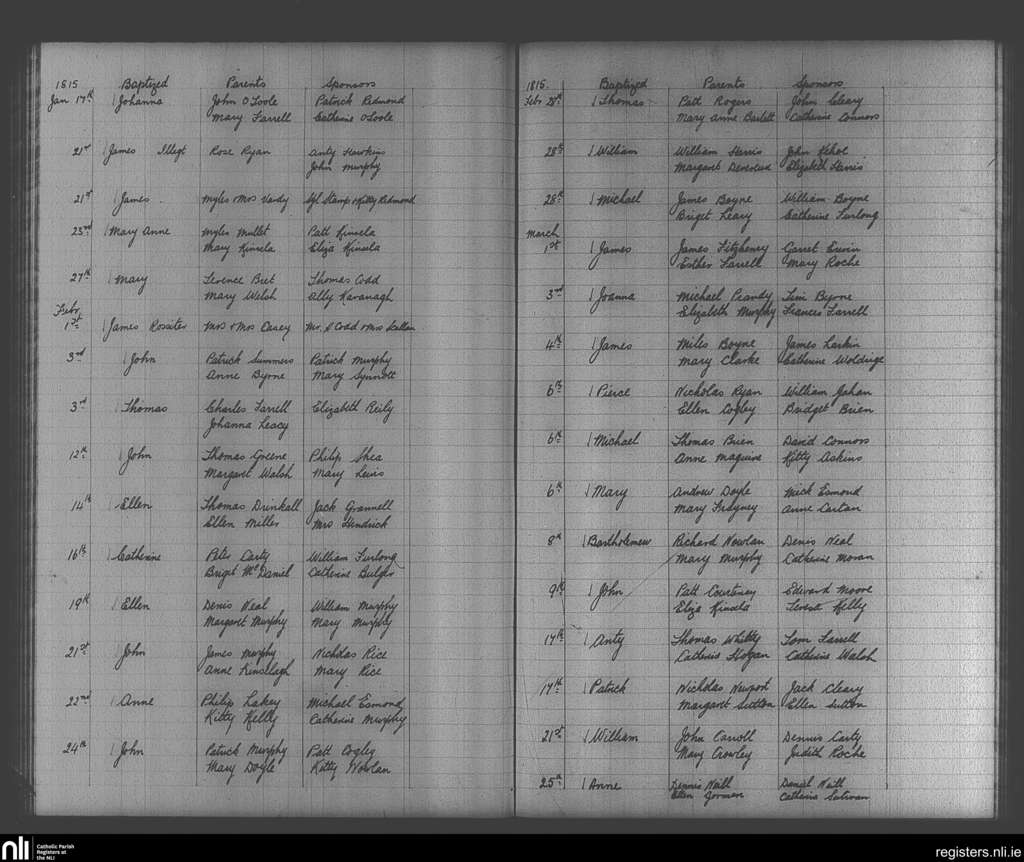 1815 Baptized Parents Sponsors
Jan 17th Johanna John O'Toole Patrick Redmond
Mary Farrell Catherine O'Toole
21st James Illegt Rose Ryan Anty Hawkins
John Murphy
21st James Myles & Mrs Vardy Stamp & Kitty Redmond
23rd Mary Anne Myles Mullet Patt Kinsela
Mary Kinsela Eliza Kinsela
27th Mary Terence Bret Thomas Codd
Mary Welsh Ally Kavanagh
Febr
1st James Rossiter Mrs & Mrs Casey Mr. S Codd & Mrs
3rd John Patrick Summers Patrick Murphy
Anne Byrne Mary Synnott
3rd Thomas Charles Farrell Elizabeth Reily
Johanna Leacy
12th John Thomas Greene Philip Shea
Margaret Walsh Mary Lewis
14th Ellen Thomas Drinkall Jack Grannell
Ellen Miller Mrs Hendrick
16th Catherine Peter Carty William Furlong
Briget McDaniel Catherine Bulger
19th Ellen Denis Neal William Murphy
Margaret Murphy Mary Murphy
21st John James Murphy Nicholas Rice
Anne Kinsellagh Mary Rice
22nd Anne Philip Lakey Michael Esmond
Kitty Kelly Catherine Murphy
24th John Patrick Murphy Patt Cogley
Mary Doyle Kitty Nowlan
1815 Baptized Parents Sponsors
Febr 28th Thomas Patt Rogers John Cleary
Mary Anne Barlett Catherine Connors
28th William William Harris John Kehoe
Margaret Devereux Elizabeth Harris
28th Michael James Boyne William Boyne
Briget Leary Catherine Furlong
March
1st James James Fitzhenry Garret Erwin
Esther Farrell Mary Roche
3rd Joanna Michael Prandy Tim Byrne
Elizabeth Murphy Frances Farrell
4th James Miles Boyne James Larkin
Mary Clarke Catherine Woldrige
6th Pierce Nicholas Ryan William Gahan
Ellen Cogley Bridget Brien
6th Michael Thomas Brien David Connors
Anne Maguire Kitty Askins
6th Mary Andrew Doyle Mick Esmond
Mary Trayney Anne Carton
8th Bartholemew Richard Nowlan Denis Neal
Mary Murphy Catherine Moran
9th John Patt Courtney Edward Moore
Eliza Kinsela Teresa Kelly
17th Anty Thomas Whitty Tom Farrell
Catherine Hogan Catherine Walsh
17th Patrick Nicholas Newport Jack Cleary
Margaret Sutton Ellen Sutton
21st William John Carroll Dennis Carty
Mary Crowley Judith Roche
25th Anne Dennis Neill Daniel Neill
Ellen Gorman Catherine Sutivan
nli Catholic Parish
Registers at
the NLI
registers.nli.ie